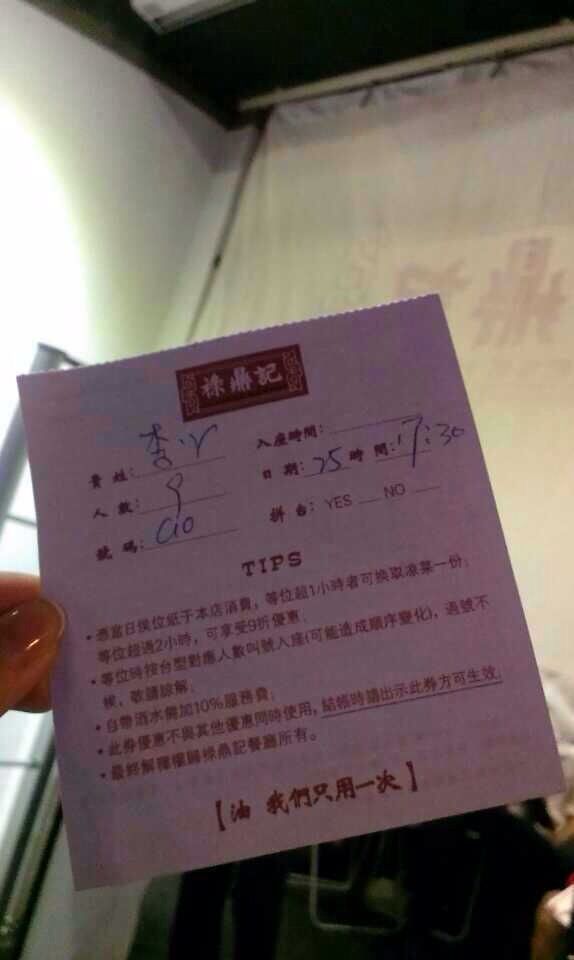 祿鼎記
貴姓：李
入座時間：
人數：9
日期：25 時間：17:30
號碼：C10
拼台：YES NO
TIPS
• 憑當日侯位紙于本店消費，等位超1小時者可換取涼菜一份；
等位超過2小時，可享受9折優惠；
• 等位時按台型對應人數叫號入座(可能造成順序變化)，過號不
候，敬請諒解；
• 自帶酒水需加10%服務費；
• 此券優惠不與其他優惠同時使用，結帳時請出示此券方可生效；
• 最終解釋權歸祿鼎記餐廳所有。
【油 我們只用一次】
鼎